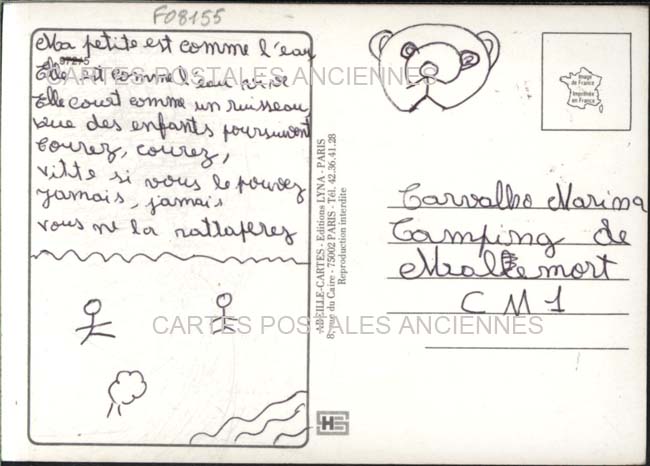 F08155
Ma petite est comme l'eau
97215
Elle est comme l'eau vive
CARTES POSTALES ANCIENNES
Elle court comme un ruisseau
que des enfants poursuivent
Courez, courez,
vitte si vous le pouvez
jamais, jamais
vous ne la rattaperez
CARTES POSTALES ANCIENNES
ABEILLE-CARTES - Editions LYNA - PARIS
8, rue du Caire - 75002 PARIS - Tél. 42.36.41.28
Reproduction interdite
HS
Image
de France
Imprimée
en France
Carvalho Marina
Camping de
Mallemort
CM1